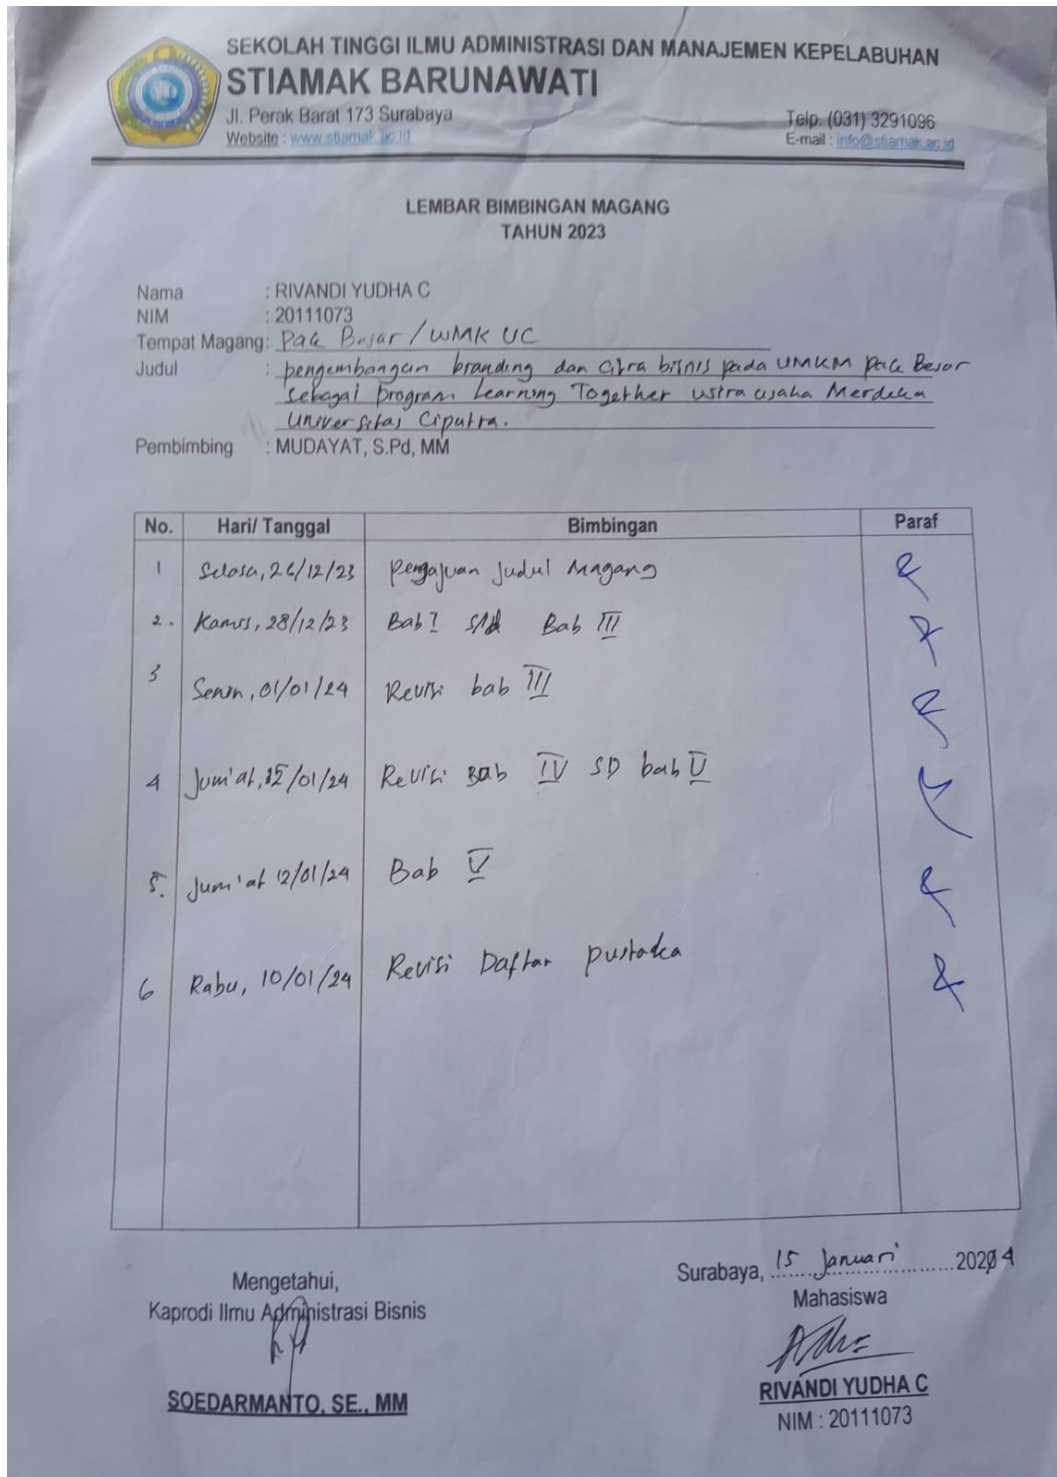 SEKOLAH TINGGI ILMU ADMINISTRASI DAN MANAJEMEN KEPELABUHAN
STIAMAK BARUNAWATI
Jl. Perak Barat 173 Surabaya
Telp. (031) 3291096
Website : www.stiamak.ac.id
E-mail : info@stiamak.ac.id
LEMBAR BIMBINGAN MAGANG
TAHUN 2023
Nama : RIVANDI YUDHA C
NIM : 20111073
Tempat Magang: Pak Besar / WMK UC
Judul : pengembangan branding dan citra bisnis pada UMKM pak Besar
sebagai program Learning Together wirausaha Merdeka
Universitas Ciputra.
Pembimbing : MUDAYAT, S.Pd, MM
No. Hari/ Tanggal Bimbingan Paraf
1 Selasa, 26/12/23 Pengajuan Judul Magang
2. Kamis, 28/12/23 Bab I s/d Bab III
3 Senin, 01/01/24 Revisi bab III
4 Jum'at, /01/24 Revisi Bab IV SD bab V
5. Jum'at 12/01/24 Bab V
6 Rabu, 10/01/24 Revisi Daftar pustaka
Surabaya, 15 Januari 2024
Mengetahui,
Mahasiswa
Kaprodi Ilmu Administrasi Bisnis
SOEDARMANTO, SE., MM
RIVANDI YUDHA C
NIM : 20111073